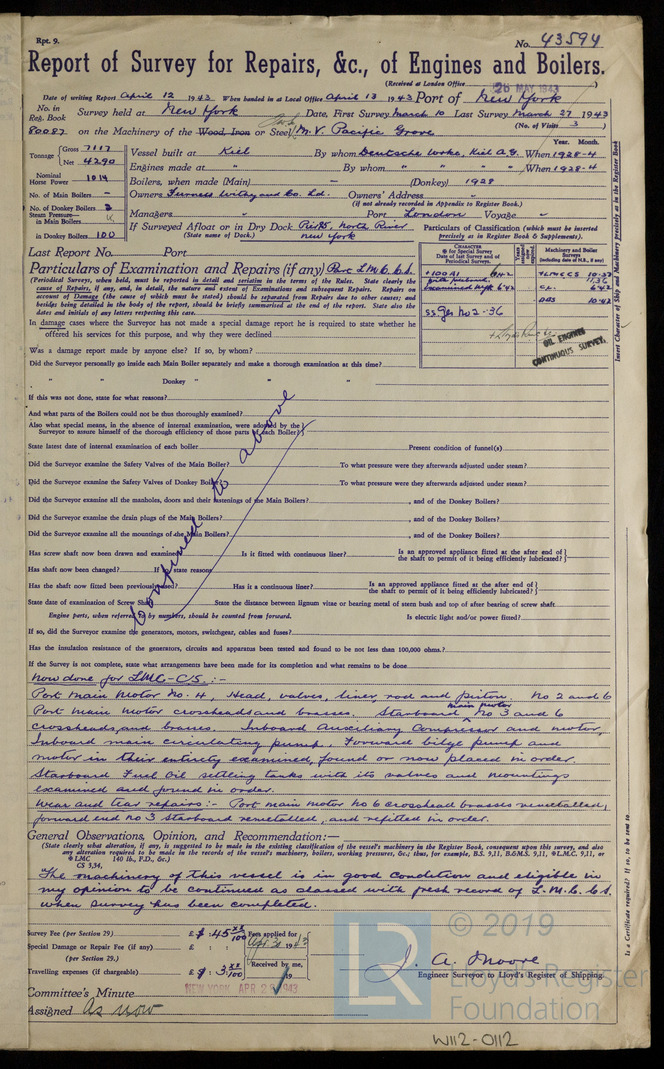 Rpt. 9.
No. 43594
Report of Survey for Repairs, &c., of Engines and Boilers.
(Received at London Office 26 MAY 1943)
Date of writing Report April 12 1943 When handed in at Local Office April 13 1943 Port of New York
No. in Reg. Book Survey held at New York Date, First Survey March 10 Last Survey March 27 1943
(No. of Visits 3)
80087 on the Machinery of the Wood, Iron or Steel M.V. Pacific Grove
Tonnage Gross 7117 Net 4290
Vessel built at Kiel By whom Deutsche Werke, Kiel A.G. When 1928-4
Year. Month.
Engines made at " By whom " " " " When 1928-4
Nominal Horse Power 1014
Boilers, when made (Main) - (Donkey) 1928
No. of Main Boilers -
Owners Furness Withy and Co. Ld. Owners' Address
(if not already recorded in Appendix to Register Book.)
No. of Donkey Boilers 2
Steam Pressure— in Main Boilers
in Donkey Boilers 100
Managers " Port London Voyage "
If Surveyed Afloat or in Dry Dock Pier 95, North River
(State name of Dock.) New York
Particulars of Classification (which must be inserted precisely as in Register Book & Supplements).
Last Report No. Port
Particulars of Examination and Repairs (if any) Part L.M.C. C.S.
(Periodical Surveys, when held, must be reported in detail and seriatim in the terms of the Rules. State clearly the
cause of Repairs, if any, and, in detail, the nature and extent of Examinations and subsequent Repairs. Repairs on
account of Damage (the cause of which must be stated) should be separated from Repairs due to other causes; and
besides being detailed in the body of the report, should be briefly summarised at the end of report. State also the
dates and initials of any letters respecting this case.
CHARACTER
for Special Survey
Date of last Survey and of Periodical Surveys.
Machinery and Boiler Surveys
(including date of N.B., if any)
+100 A1
SS Gn No 2-36
+LMC CS 10-37
11,36
DBS 10-42
OIL ENGINES
CONTINUOUS SURVEY.
In damage cases where the Surveyor has not made a special damage report he is required to state whether he
offered his services for this purpose, and why they were declined
Was a damage report made by anyone else? If so, by whom?
Did the Surveyor personally go inside each Main Boiler separately and make a thorough examination at this time?
" " Donkey " " "
If this was not done, state for what reasons?
And what parts of the Boilers could not be thus thoroughly examined?
Also what special means, in the absence of internal examination, were adopted by the
Surveyor to assure himself of the thorough efficiency of those parts of each Boiler?
State latest date of internal examination of each boiler Present condition of funnel(s)
Did the Surveyor examine the Safety Valves of the Main Boiler? To what pressure were they afterwards adjusted under steam?
Did the Surveyor examine the Safety Valves of Donkey Boiler? To what pressure were they afterwards adjusted under steam?
Did the Surveyor examine all the manholes, doors and their fastenings of the Main Boilers? , and of the Donkey Boilers?
Did the Surveyor examine the drain plugs of the Main Boilers? , and of the Donkey Boilers?
Did the Surveyor examine all the mountings of the Main Boilers? , and of the Donkey Boilers?
Confined to above
Has screw shaft now been drawn and examined Is it fitted with continuous liner? Is an approved appliance fitted at the after end of the shaft to permit of it being efficiently lubricated?
Has shaft now been changed? If so, state reasons
Has the shaft now fitted been previously used? Has it a continuous liner? Is an approved appliance fitted at the after end of the shaft to permit of it being efficiently lubricated?
State date of examination of Screw Shaft State the distance between lignum vitæ or bearing metal of stern bush and top of after bearing of screw shaft
Engine parts, when referred to by numbers, should be counted from forward. Is electric light and/or power fitted?
If so, did the Surveyor examine the generators, motors, switchgear, cables and fuses?
Has the insulation resistance of the generators, circuits and apparatus been tested and found to be not less than 100,000 ohms?
If the Survey is not complete, state what arrangements have been made for its completion and what remains to be done
Now done for LMC-CS. :-
Port Main Motor No. 4, Head, valves, liner, rod and piston. No 2 and 6
Port main motor crossheads and brasses. Starboard main motor No 3 and 6
crossheads, and brasses. Inboard Auxiliary Compressor and motor,
Inboard main circulating pump. Forward bilge pump and
motor in their entirety examined, found or now placed in order.
Starboard Fuel Oil settling tanks with its valves and mountings
examined and found in order.
Wear and Tear repairs :- Port main motor No 6 crosshead brasses remetalled,
forward end No 3 Starboard remetalled, and refitted in order.
General Observations, Opinion, and Recommendation:—
(State clearly what alteration, if any, is suggested to be made in the existing classification of the vessel's machinery in the Register Book, consequent upon this survey, and also
any alteration required to be made in the records of the vessel's machinery, boilers, working pressures, &c.; thus, for example, B.S. 9,11, B.&M.S. 9,11, LMC. 9,11, or
LMC 140 lb., F.D., &c.)
CS 3,34,
The machinery of this vessel is in good condition and eligible in
my opinion to be continued as classed with fresh record of L.M.C. C.S.
when survey has been completed.
Survey Fee (per Section 29) £ $ : 45 xx/100 Fees applied for
Special Damage or Repair Fee (if any) £ : : Apr 30 1943
(per Section 29.) Received by me,
Travelling expenses (if chargeable) £ $ : 3 xx/100 19
J. A. Moore
Engineer Surveyor to Lloyd's Register of Shipping.
Committee's Minute NEW YORK APR 28 1943
Assigned As now
Insert Character of Ship and Machinery precisely as in the Register Book
Is a Certificate required? If so, to be sent to
© 2019
LR
Lloyd's Register
Foundation
W112-0112